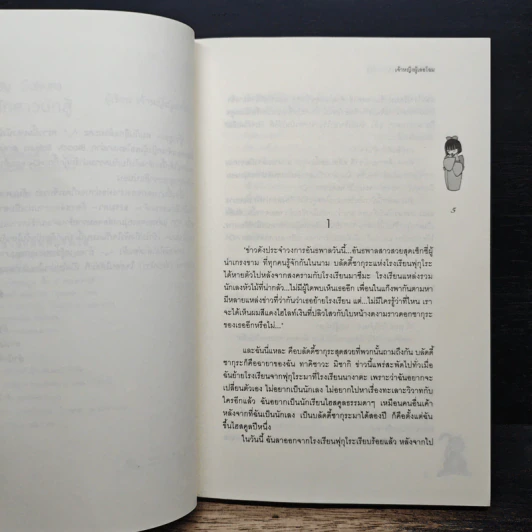 เจ้าหญิงผู้เลอโฉม
5
1
'ข่าวดังประจำวงการอันธพาลวันนี้...อันธพาลสาวสวยสุดเซ็กซี่ผู้
น่าเกรงขาม ที่ทุกคนรู้จักกันในนาม บลัดดี้ซากุระแห่งโรงเรียนฟุกุโระ
ได้หายตัวไปหลังจากสงครามกับโรงเรียนมาชิมะ โรงเรียนแหล่งรวม
นักเลงหัวไม้ที่น่ากลัว...ไม่มีผู้ใดพบเห็นเธออีก เพื่อนในแก๊งพากันตามหา
มีหลายแหล่งข่าวที่ว่ากันว่าเธอย้ายโรงเรียน แต่...ไม่มีใครรู้ว่าที่ไหน เรา
จะได้เห็นผมสีแดงไฮไลท์เงินที่ปลิวไสวกับใบหน้างดงามราวดอกซากุระ
ของเธออีกหรือไม่...'
และฉันนี่แหละ คือบลัดดี้ซากุระสุดสวยที่พวกนั้นถามถึงกัน บลัดดี้
ซากุระก็คือฉายาของฉัน ทาคิซาวะ มิซากิ ข่าวนี้แพร่สะพัดไปทั่วเมื่อ
ฉันย้ายโรงเรียนจากฟุกุโระมาที่โรงเรียนนางาตะ เพราะว่าฉันอยากจะ
เปลี่ยนตัวเอง ไม่อยากเป็นนักเลง ไม่อยากไปหาเรื่องทะเลาะวิวาทกับ
ใครอีกแล้ว ฉันอยากเป็นนักเรียนไฮสคูลธรรมดาๆ เหมือนคนอื่นเค้า
หลังจากที่ฉันเป็นนักเลง เป็นบลัดดี้ซากุระมาได้สองปี ก็คือตั้งแต่ฉัน
ขึ้นไฮสคูลปีหนึ่ง
ในวันนี้ ฉันลาออกจากโรงเรียนฟุกุโระเรียบร้อยแล้ว หลังจากไป